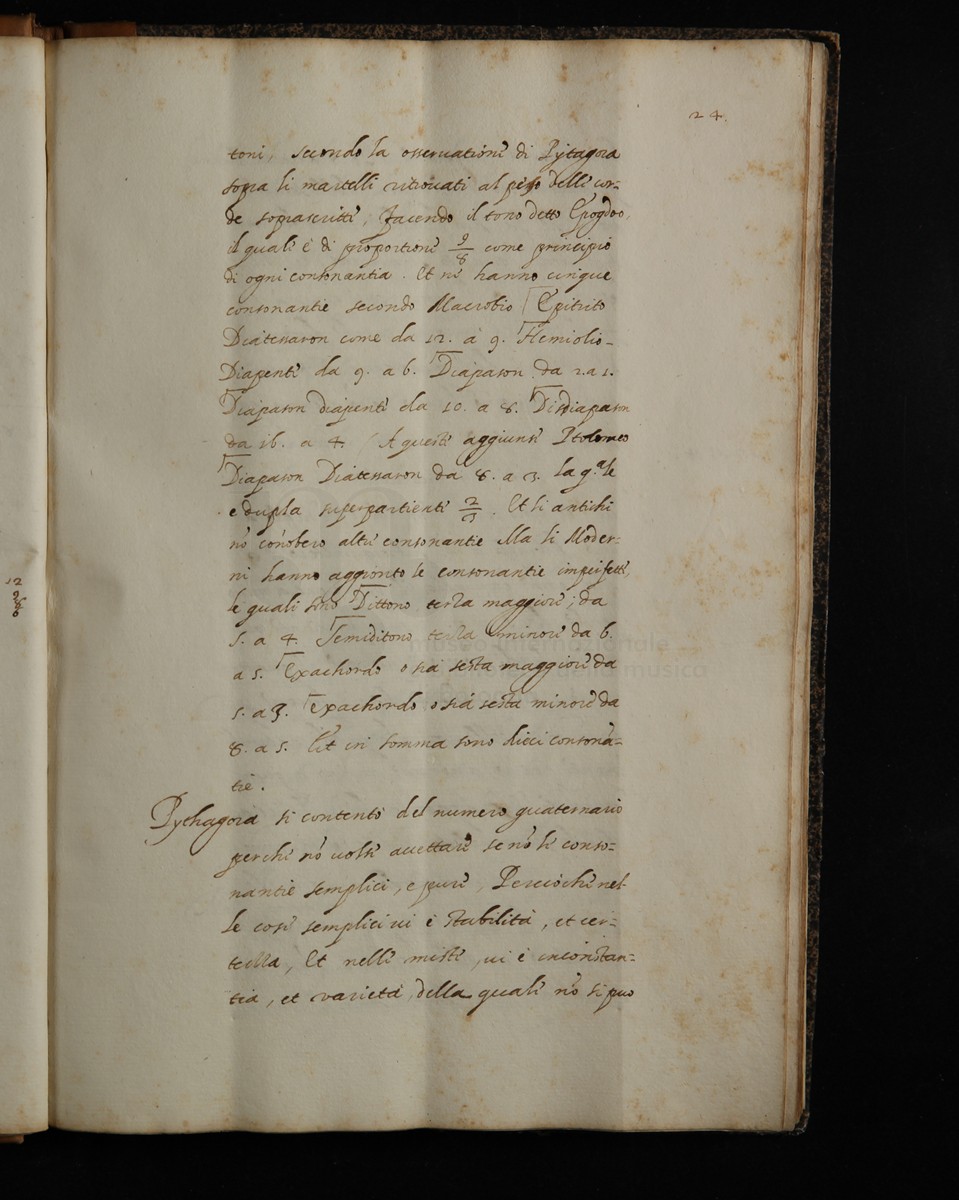 24.
toni, secondo la osservatione di Pytagora
sopra li martelli ritrovati al peso delle cor=
de soprascritte, facendo il tono detto Epogdoo,
il quale è di proportione 9/8 come principio
di ogni consonantia. Et ne hanno cinque
consonantie secondo Macrobio Epitrito
Diatessaron come da 12. a 9. Hemiolio-
Diapente da 9. a 6. Diapason da 2. a 1.
Diapason diapente da 10. a 8. Disdiapason
da 16. a 4. A queste aggiunse Ptolomeo
Diapason Diatessaron da 8. a 3. la q.ale
e dupla superpartiente 2/3. Et li antichi
nō conobero altre consonantie Ma li Moder=
ni hanno aggionto le consonantie imperfette,
le quali sono Dittono terza maggiore, da
5. a 4. Semiditono terza minore da 6.
a 5. Exachordo o sia sesta maggiore da
5. a 3. Exachordo o sia sesta minore da
8. a 5. Et in somma sono dieci consonā=
tie.
Pythagora si contentò del numero quaternario
perche nō volse accettare se nō le conso=
nantie semplici, e pure, Percioche nel=
le cose semplici vi è stabilità, et cer=
tezza, Et nelle miste, vi è inconstan=
tia, et varietà, della quale nō si può
12
museo internazionale
della musica